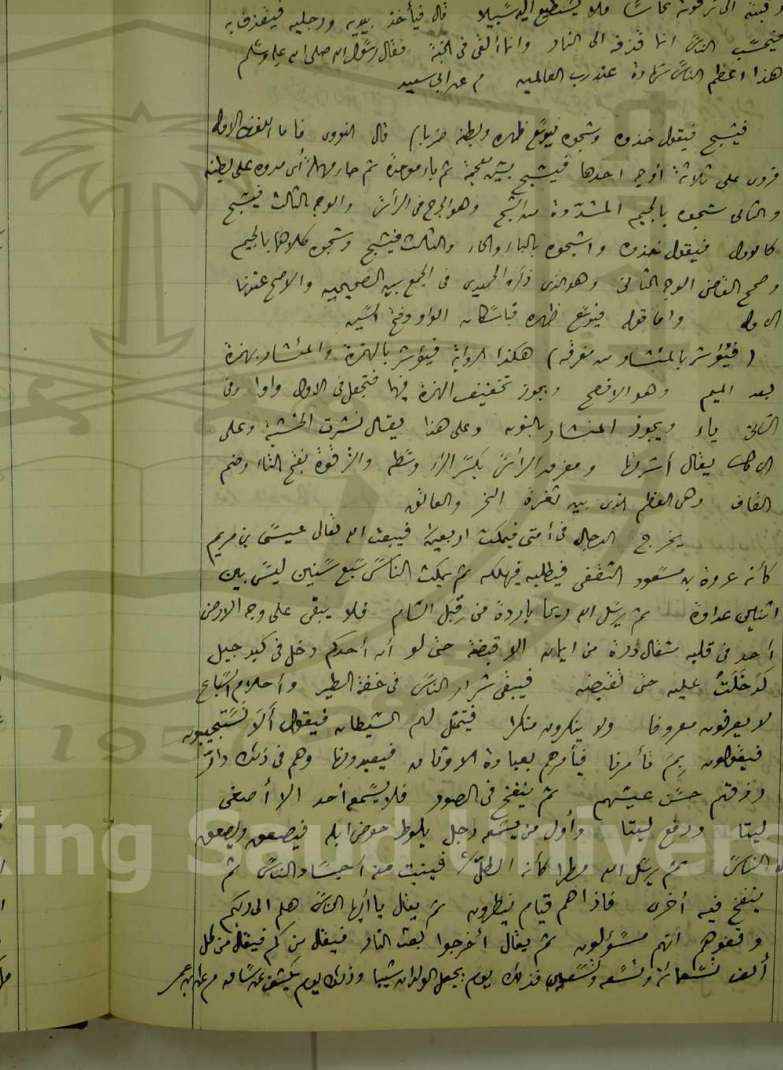 رقبته الى ترقوته نحاسا فلا يستطيع اليه سبيلا قال فيأخذ بيديه ورجليه فيقذف به
فيحسب الناس انما قذفه الى النار وانما القى فى الجنة فقال رسول الله صلى الله عليه وسلم
هذا اعظم الناس شهادة عند رب العالمين م عن ابى سعيد
فيشبح فيقول خذوه وشجوه فيوسع ظهره وبطنه ضربا) قال النووى فاما اللفظ الاول
فروى على ثلاثة أوجه احدها فيشبح بشين معجمة ثم باء موحدة ثم حاء مهملة أى مدوه على بطنه
والثانى شجوه بالجيم المشددة من الشج وهو الجرح فى الرأس والوجه الثالث فيشبح
كالاول فيقول خذوه واشبحوه بالباء والحاء والثالث فيشج وشجوه كلاهما بالجيم
وصحح القاضى الوجه الثانى وهو الذى ذكره الحميدى فى الجمع بين الصحيحين والاصح عندنا
الاول واما قوله فيوسع ظهره فباسكان الواو وفتح السين
(فيؤشر بالمئشار من مفرقه) هكذا الرواية فيؤشر بالهمزة والمئشار بهمزة
بعد الميم وهو الافصح ويجوز تخفيف الهمزة فيهما فتجعل فى الاول واوا وفى
الثانى ياء ويجوز المنشار بالنون وعلى هذا يقال نشرت الخشبة وعلى
يقال أشرتها ومفرق الرأس بكسر الراء وسطه والترقوة بفتح التاء وضم
القاف وهى العظم الذى بين ثغرة النحر والعاتق
يخرج الدجال فى أمتى فيمكث اربعين فيبعث الله تعالى عيسى بن مريم
كأنه عروة بن مسعود الثقفى فيطلبه فيهلكه ثم يمكث الناس سبع سنين ليس بين
اثنين عداوة ثم يرسل الله ريحا باردة من قبل الشام فلا يبقى على وجه الارض
أحد فى قلبه مثقال ذرة من ايمان الا قبضته حتى لو أن أحدكم دخل فى كبد جبل
لدخلت عليه حتى تقبضه فيبقى شرار الناس فى خفة الطير وأحلام السباع
لا يعرفون معروفا ولا ينكرون منكرا فيتمثل لهم الشيطان فيقول ألا تستجيبون
فيقولون بم تأمرنا فيأمرهم بعبادة الاوثان فيعبدونها وهم فى ذلك دار
رزقهم حسن عيشهم ثم ينفخ فى الصور فلا يسمعه أحد الا أصغى
ليتا ورفع ليتا وأول من يسمعه رجل يلوط حوض ابله فيصعق ويصعق
الناس ثم يرسل الله مطرا كأنه الطل فينبت منه أجساد الناس ثم
ينفخ فيه أخرى فاذا هم قيام ينظرون ثم يقال يا أيها الناس هلم الى ربكم
وقفوهم انهم مسؤلون ثم يقال أخرجوا بعث النار فيقال من كم فيقال من كل
ألف تسعمائة وتسعة وتسعين فذلك يوم يجعل الولدان شيبا وذلك يوم يكشف عن ساق م عن ابن عمر
King Saud University
195